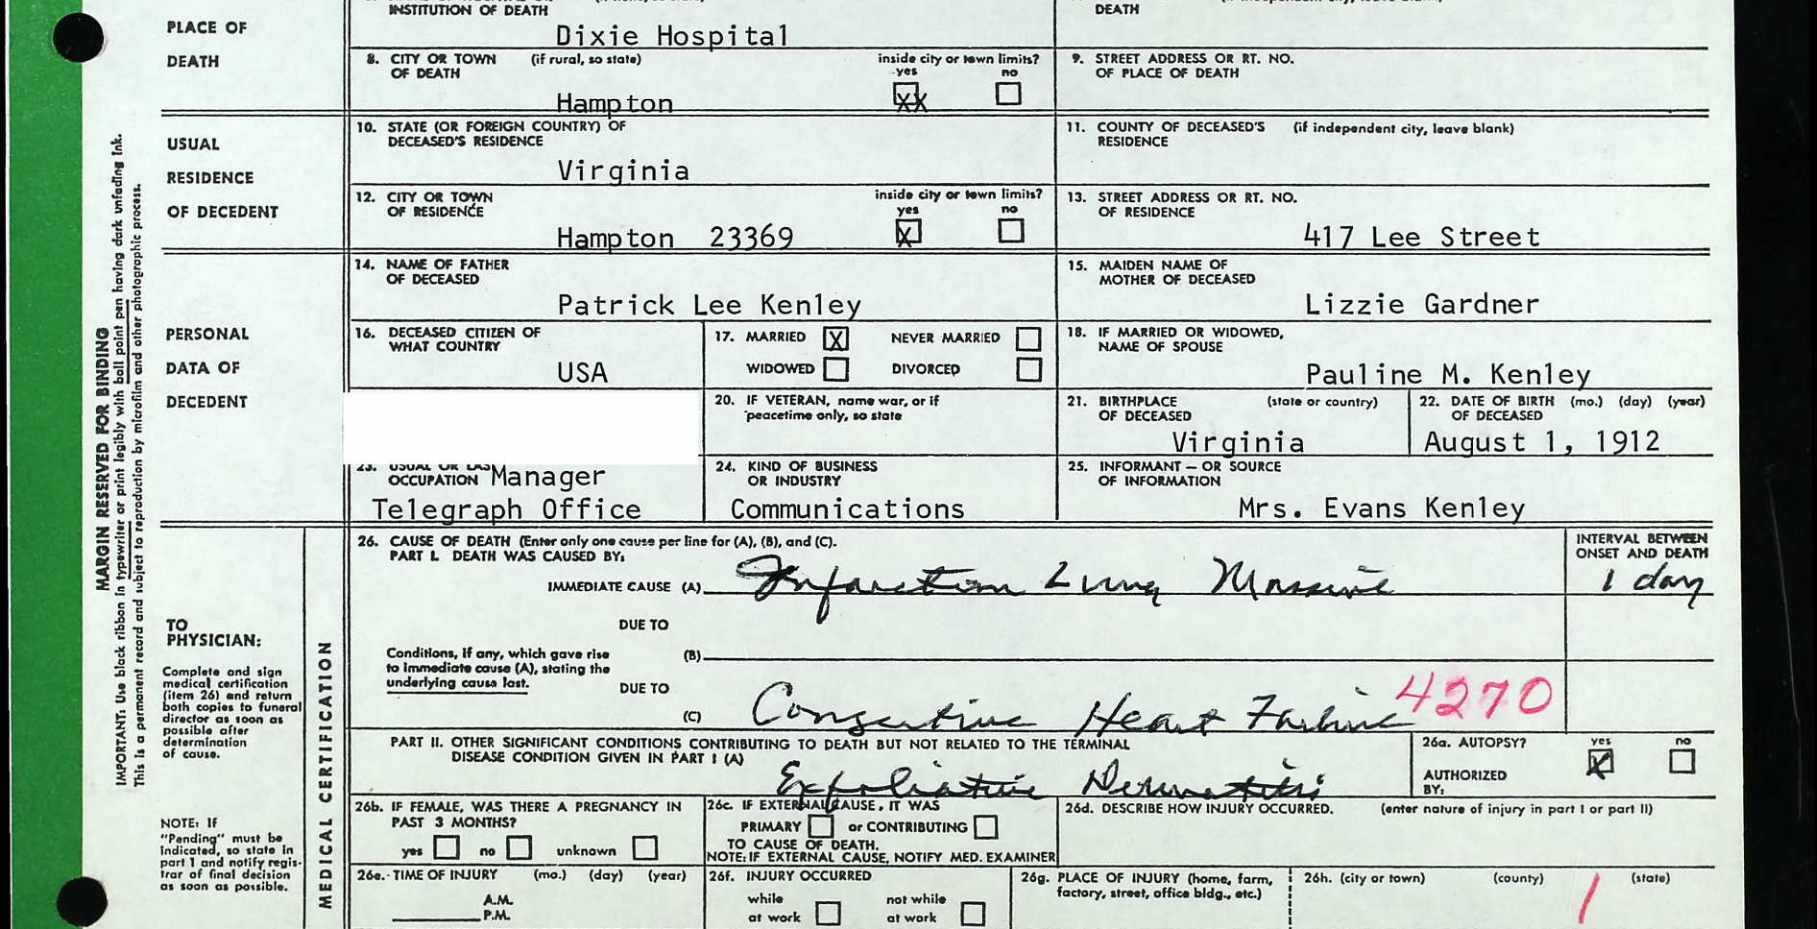 INSTITUTION OF DEATH
DEATH
PLACE OF
DEATH
Dixie Hospital
8. CITY OR TOWN (if rural, so state)
OF DEATH
inside city or town limits?
yes no
Hampton XX
9. STREET ADDRESS OR RT. NO.
OF PLACE OF DEATH
USUAL
RESIDENCE
OF DECEDENT
10. STATE (OR FOREIGN COUNTRY) OF
DECEASED'S RESIDENCE
Virginia
11. COUNTY OF DECEASED'S (if independent city, leave blank)
RESIDENCE
12. CITY OR TOWN
OF RESIDENCE
inside city or town limits?
yes no
Hampton 23369 X
13. STREET ADDRESS OR RT. NO.
OF RESIDENCE
417 Lee Street
PERSONAL
DATA OF
DECEDENT
14. NAME OF FATHER
OF DECEASED
Patrick Lee Kenley
15. MAIDEN NAME OF
MOTHER OF DECEASED
Lizzie Gardner
16. DECEASED CITIZEN OF
WHAT COUNTRY
USA
17. MARRIED X NEVER MARRIED
WIDOWED DIVORCED
18. IF MARRIED OR WIDOWED,
NAME OF SPOUSE
Pauline M. Kenley
20. IF VETERAN, name war, or if
peacetime only, so state
21. BIRTHPLACE (state or country)
OF DECEASED
Virginia
22. DATE OF BIRTH (mo.) (day) (year)
OF DECEASED
August 1, 1912
23. USUAL OR LAS
OCCUPATION Manager
Telegraph Office
24. KIND OF BUSINESS
OR INDUSTRY
Communications
25. INFORMANT — OR SOURCE
OF INFORMATION
Mrs. Evans Kenley
MARGIN RESERVED FOR BINDING
IMPORTANT: Use black ribbon in typewriter or print legibly with ball point pen having dark unfading ink.
This is a permanent record and subject to reproduction by microfilm and other photographic process.
TO
PHYSICIAN:
Complete and sign
medical certification
(item 26) and return
both copies to funeral
director as soon as
possible after
determination
of cause.
NOTE: If
"Pending" must be
indicated, so state in
part 1 and notify regis-
trar of final decision
as soon as possible.
MEDICAL CERTIFICATION
26. CAUSE OF DEATH (Enter only one cause per line for (A), (B), and (C).
PART I. DEATH WAS CAUSED BY:
INTERVAL BETWEEN
ONSET AND DEATH
IMMEDIATE CAUSE (A) Infarction Lung Massive 1 day
DUE TO
Conditions, if any, which gave rise
to immediate cause (A), stating the
underlying cause last.
(B)
DUE TO
(C) Congestive Heart Failure 4270
PART II. OTHER SIGNIFICANT CONDITIONS CONTRIBUTING TO DEATH BUT NOT RELATED TO THE TERMINAL
DISEASE CONDITION GIVEN IN PART I (A)
Exfoliative Dermatitis
26a. AUTOPSY? yes no
X
AUTHORIZED
BY:
26b. IF FEMALE, WAS THERE A PREGNANCY IN
PAST 3 MONTHS?
yes no unknown
26c. IF EXTERNAL CAUSE, IT WAS
PRIMARY or CONTRIBUTING
TO CAUSE OF DEATH.
NOTE: IF EXTERNAL CAUSE, NOTIFY MED. EXAMINER
26d. DESCRIBE HOW INJURY OCCURRED. (enter nature of injury in part I or part II)
26e. TIME OF INJURY (mo.) (day) (year)
A.M.
P.M.
26f. INJURY OCCURRED
while not while
at work at work
26g. PLACE OF INJURY (home, farm,
factory, street, office bldg., etc.)
26h. (city or town) (county) (state)
1